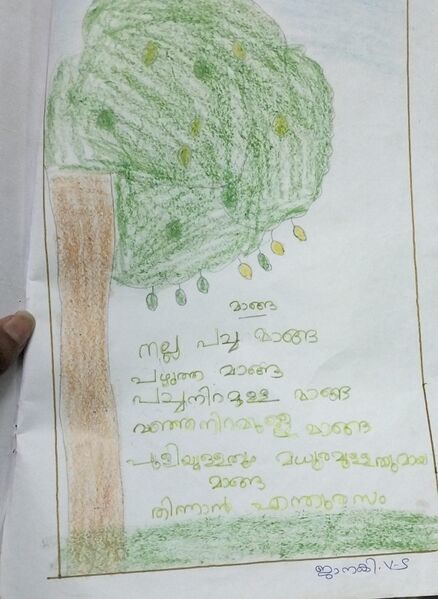 മാങ്ങ
നല്ല പച്ച മാങ്ങ
പഴുത്ത മാങ്ങ
പച്ചനിറമുള്ള മാങ്ങ
മഞ്ഞനിറമുള്ള മാങ്ങ
പുളിയുള്ളതും മധുരമുള്ളതുമായ
മാങ്ങ
തിന്നാൻ എന്തുരസം
ജാനകി.V-S